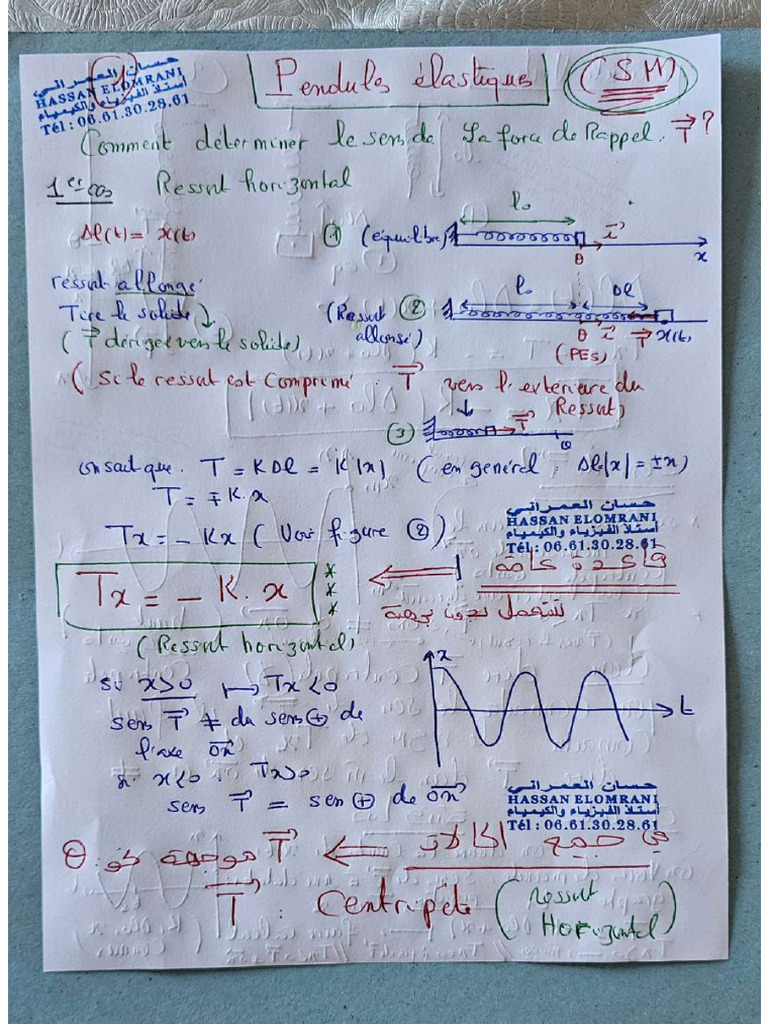 حسان العمراني
HASSAN ELOMRANI
أستاذ الفيزياء والكيمياء
Tél : 06.61.30.28.61
Pendules élastiques
(SM)
Comment déterminer le sens de la force de Rappel. T⃗ ?
1er cas Ressort horizontal
Δl(t) = x(t)
① (équilibre)
l₀
i⃗
θ
x
ressort allongé
Tire le solide
(T⃗ dérigée vers le solide)
(Ressort ② allongé)
l₀
Δl
θ i⃗ T⃗ x(t)
(PES)
(Si le ressort est comprimé T⃗ vers l'extérieure du
Ressort)
③
T⃗
θ
on sait que. T = KΔl = K|x| (en général : Δl = |x| = ±x)
T = ∓K.x
Tx = - Kx (Voir figure ②)
حسان العمراني
HASSAN ELOMRANI
أستاذ الفيزياء والكيمياء
Tél : 06.61.30.28.61
Tx = - K. x
***
قاعدة عامة
تستعمل بدون برهنة
(Ressort horizontal)
si x>0 ↦ Tx<0
sens T⃗ ≠ du sens ⊕ de
l'axe Ox⃗
x
t
si x<0 . Tx>0
sens T⃗ = sen ⊕ de Ox⃗
حسان العمراني
HASSAN ELOMRANI
أستاذ الفيزياء والكيمياء
Tél : 06.61.30.28.61
في جميع الحالات ⇐ T⃗ موجهة نحو θ
T⃗ : Centripète (ressort
Horizontal)